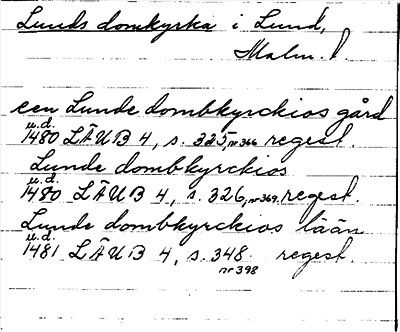 Lunds domkyrka i Lund,
Malm. l.
een Lunde dombkyrckios gård
u.d.
1480 LÄUB 4, s. 325, nr 366 regest.
Lunde dombkyrckios
u.d.
1480 LÄUB 4, s. 326, nr 369. regest.
Lunde dombkyrckios lään
u.d.
1481 LÄUB 4, s. 348. regest.
nr 398